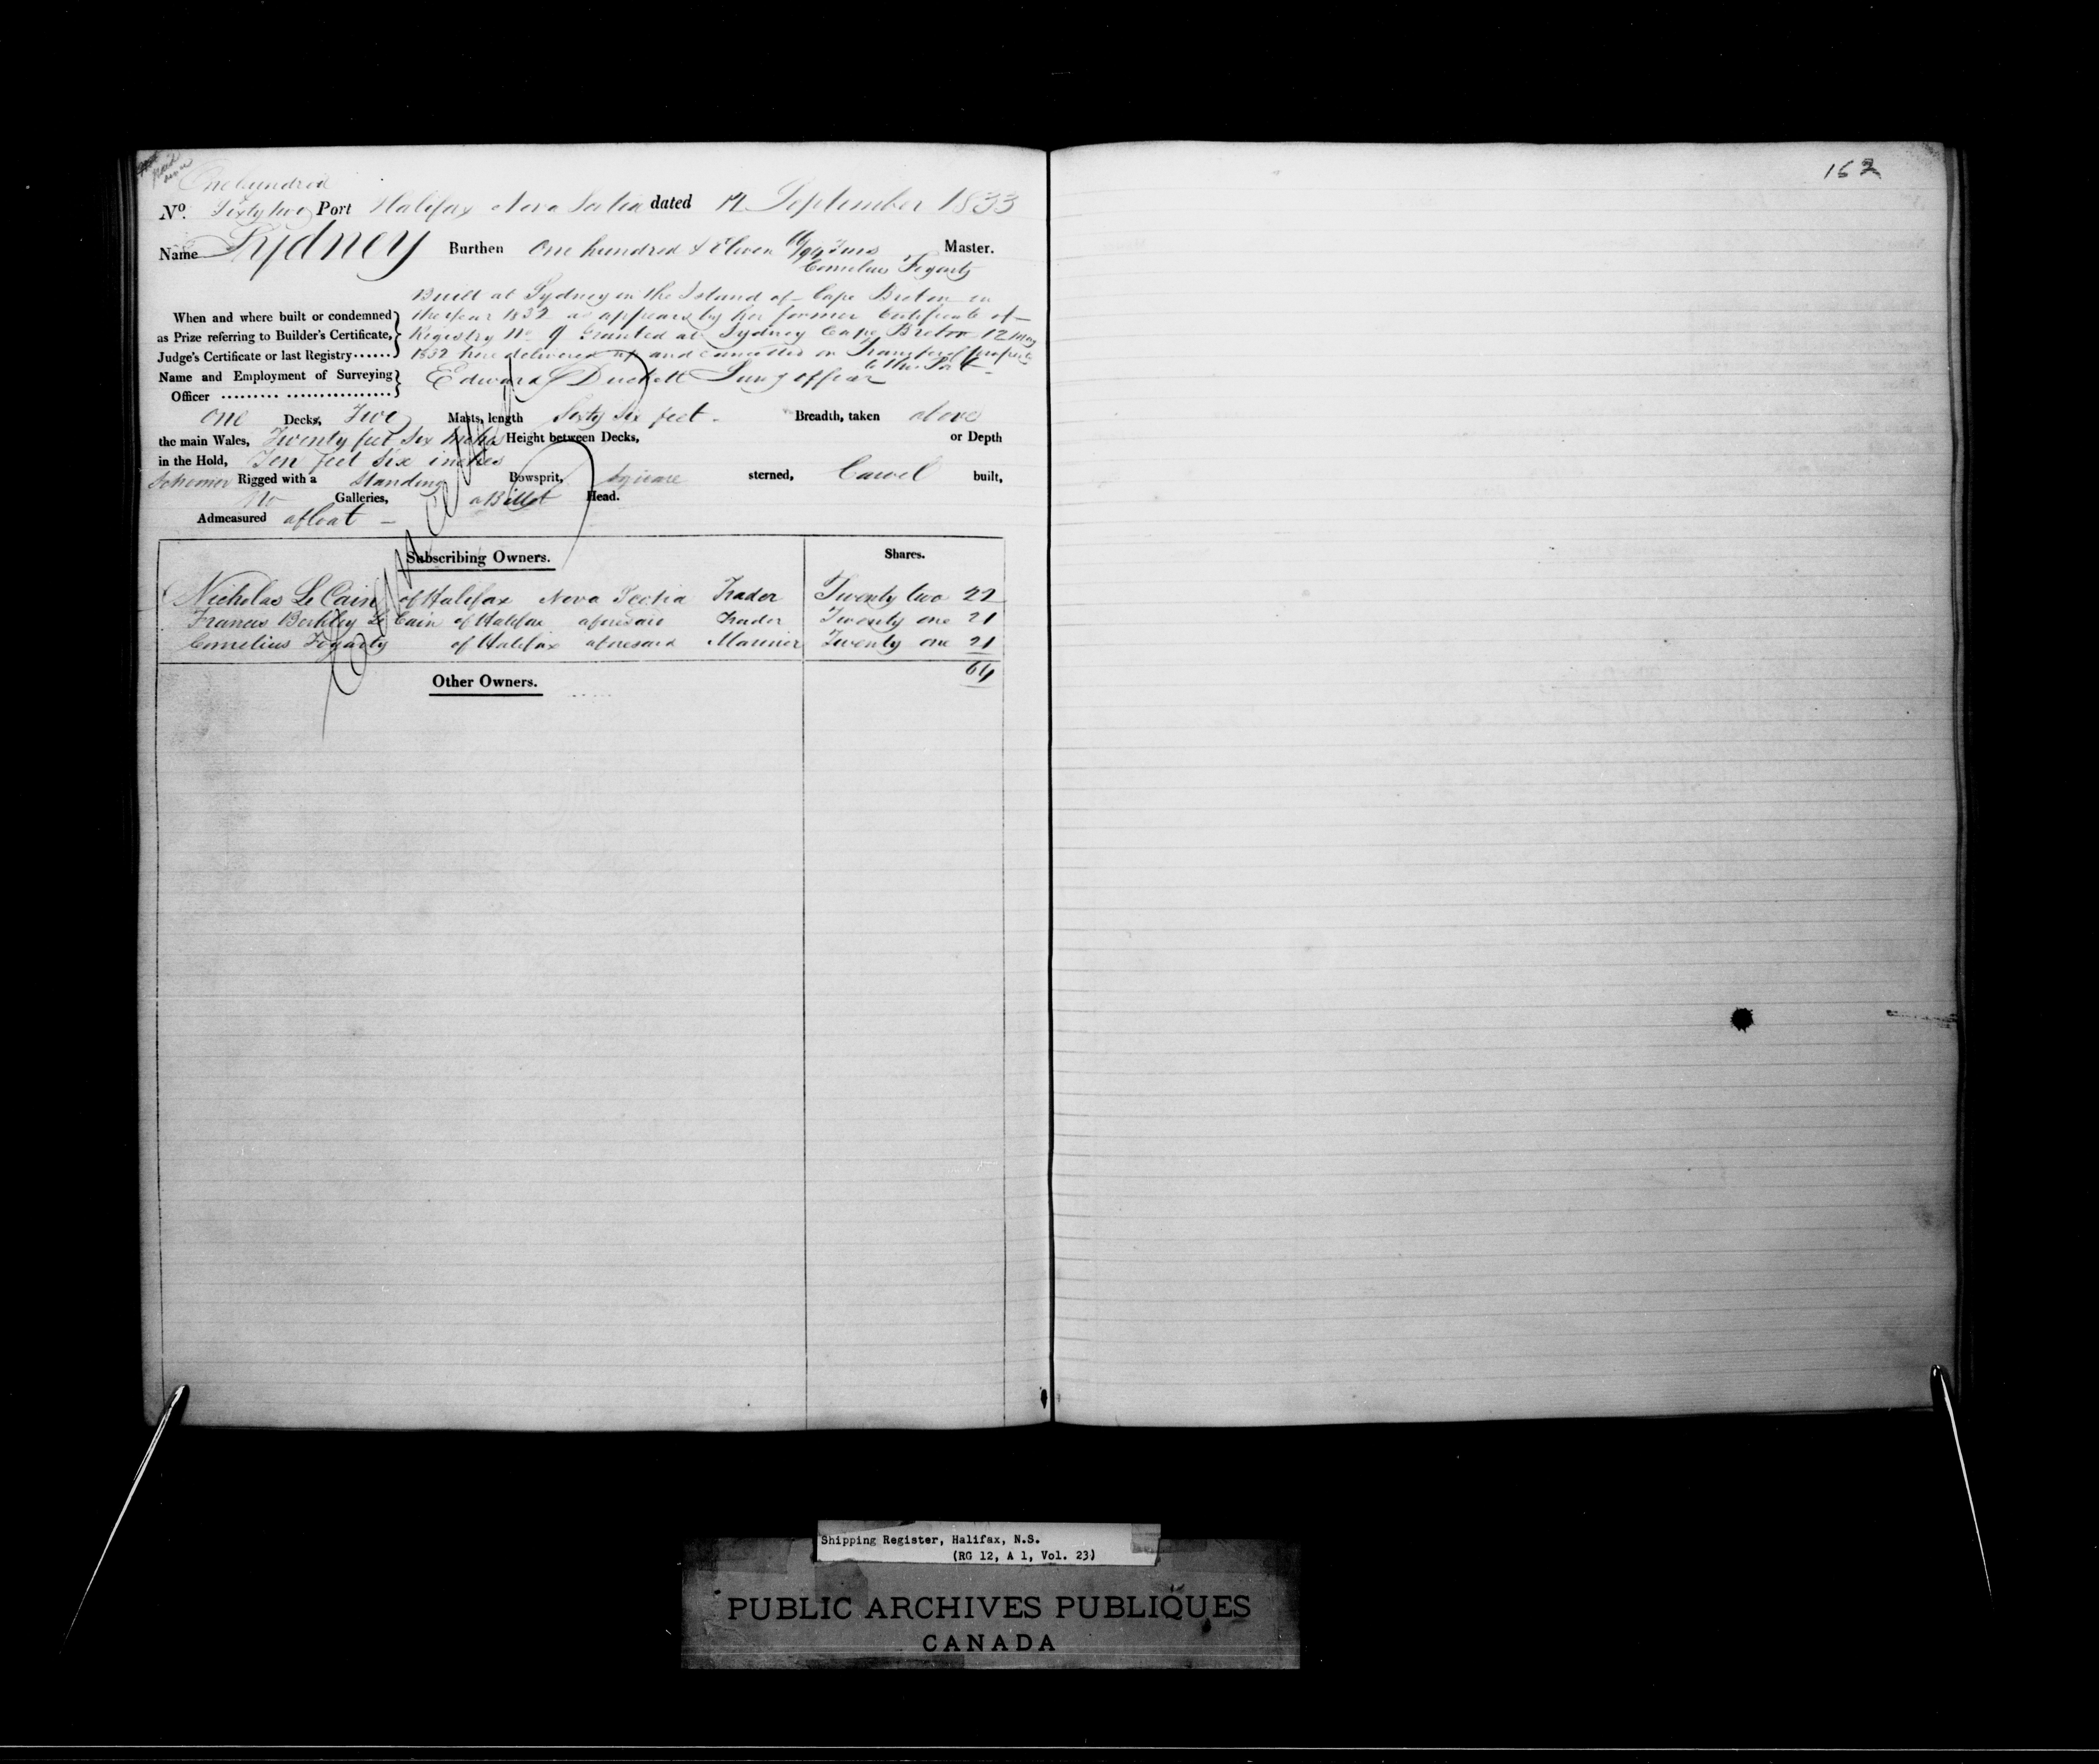 One hundred
No. Sixty two Port Halifax Nova Scotia dated 12 September 1833
Name Sydney Burthen One hundred & Eleven 66/94 Tons Master.
Cornelius Fogarty
Built at Sydney in the Island of Cape Breton in
When and where built or condemned the Year 1832 as appears by her former Certificate of
as Prize referring to Builder's Certificate, Registry No 9 Granted at Sydney Cape Breton 12 May
Judge's Certificate or last Registry...... 1832 here delivered up and cancelled on Transfer of property
to this Port
Name and Employment of Surveying Edward Duckett Surv g officer
Officer ......... ................
One Decks, Two Masts, length Sixty Six feet - Breadth, taken above
the main Wales, Twenty feet Six Inches Height between Decks, or Depth
in the Hold, Ten feet Six inches
Schooner Rigged with a Standing Bowsprit, Square sterned, Carvel built,
No Galleries, a Billet Head.
Admeasured afloat -
Cancelled
Subscribing Owners. Shares.
Nicholas Le Cain of Halifax Nova Scotia Trader Twenty two 22
Francis Berkley Le Cain of Halifax aforesaid Trader Twenty one 21
Cornelius Fogarty of Halifax aforesaid Mariner Twenty one 21
64
Other Owners.
162
Shipping Register, Halifax, N.S.
(RG 12, A 1, Vol. 23)
PUBLIC ARCHIVES PUBLIQUES
CANADA